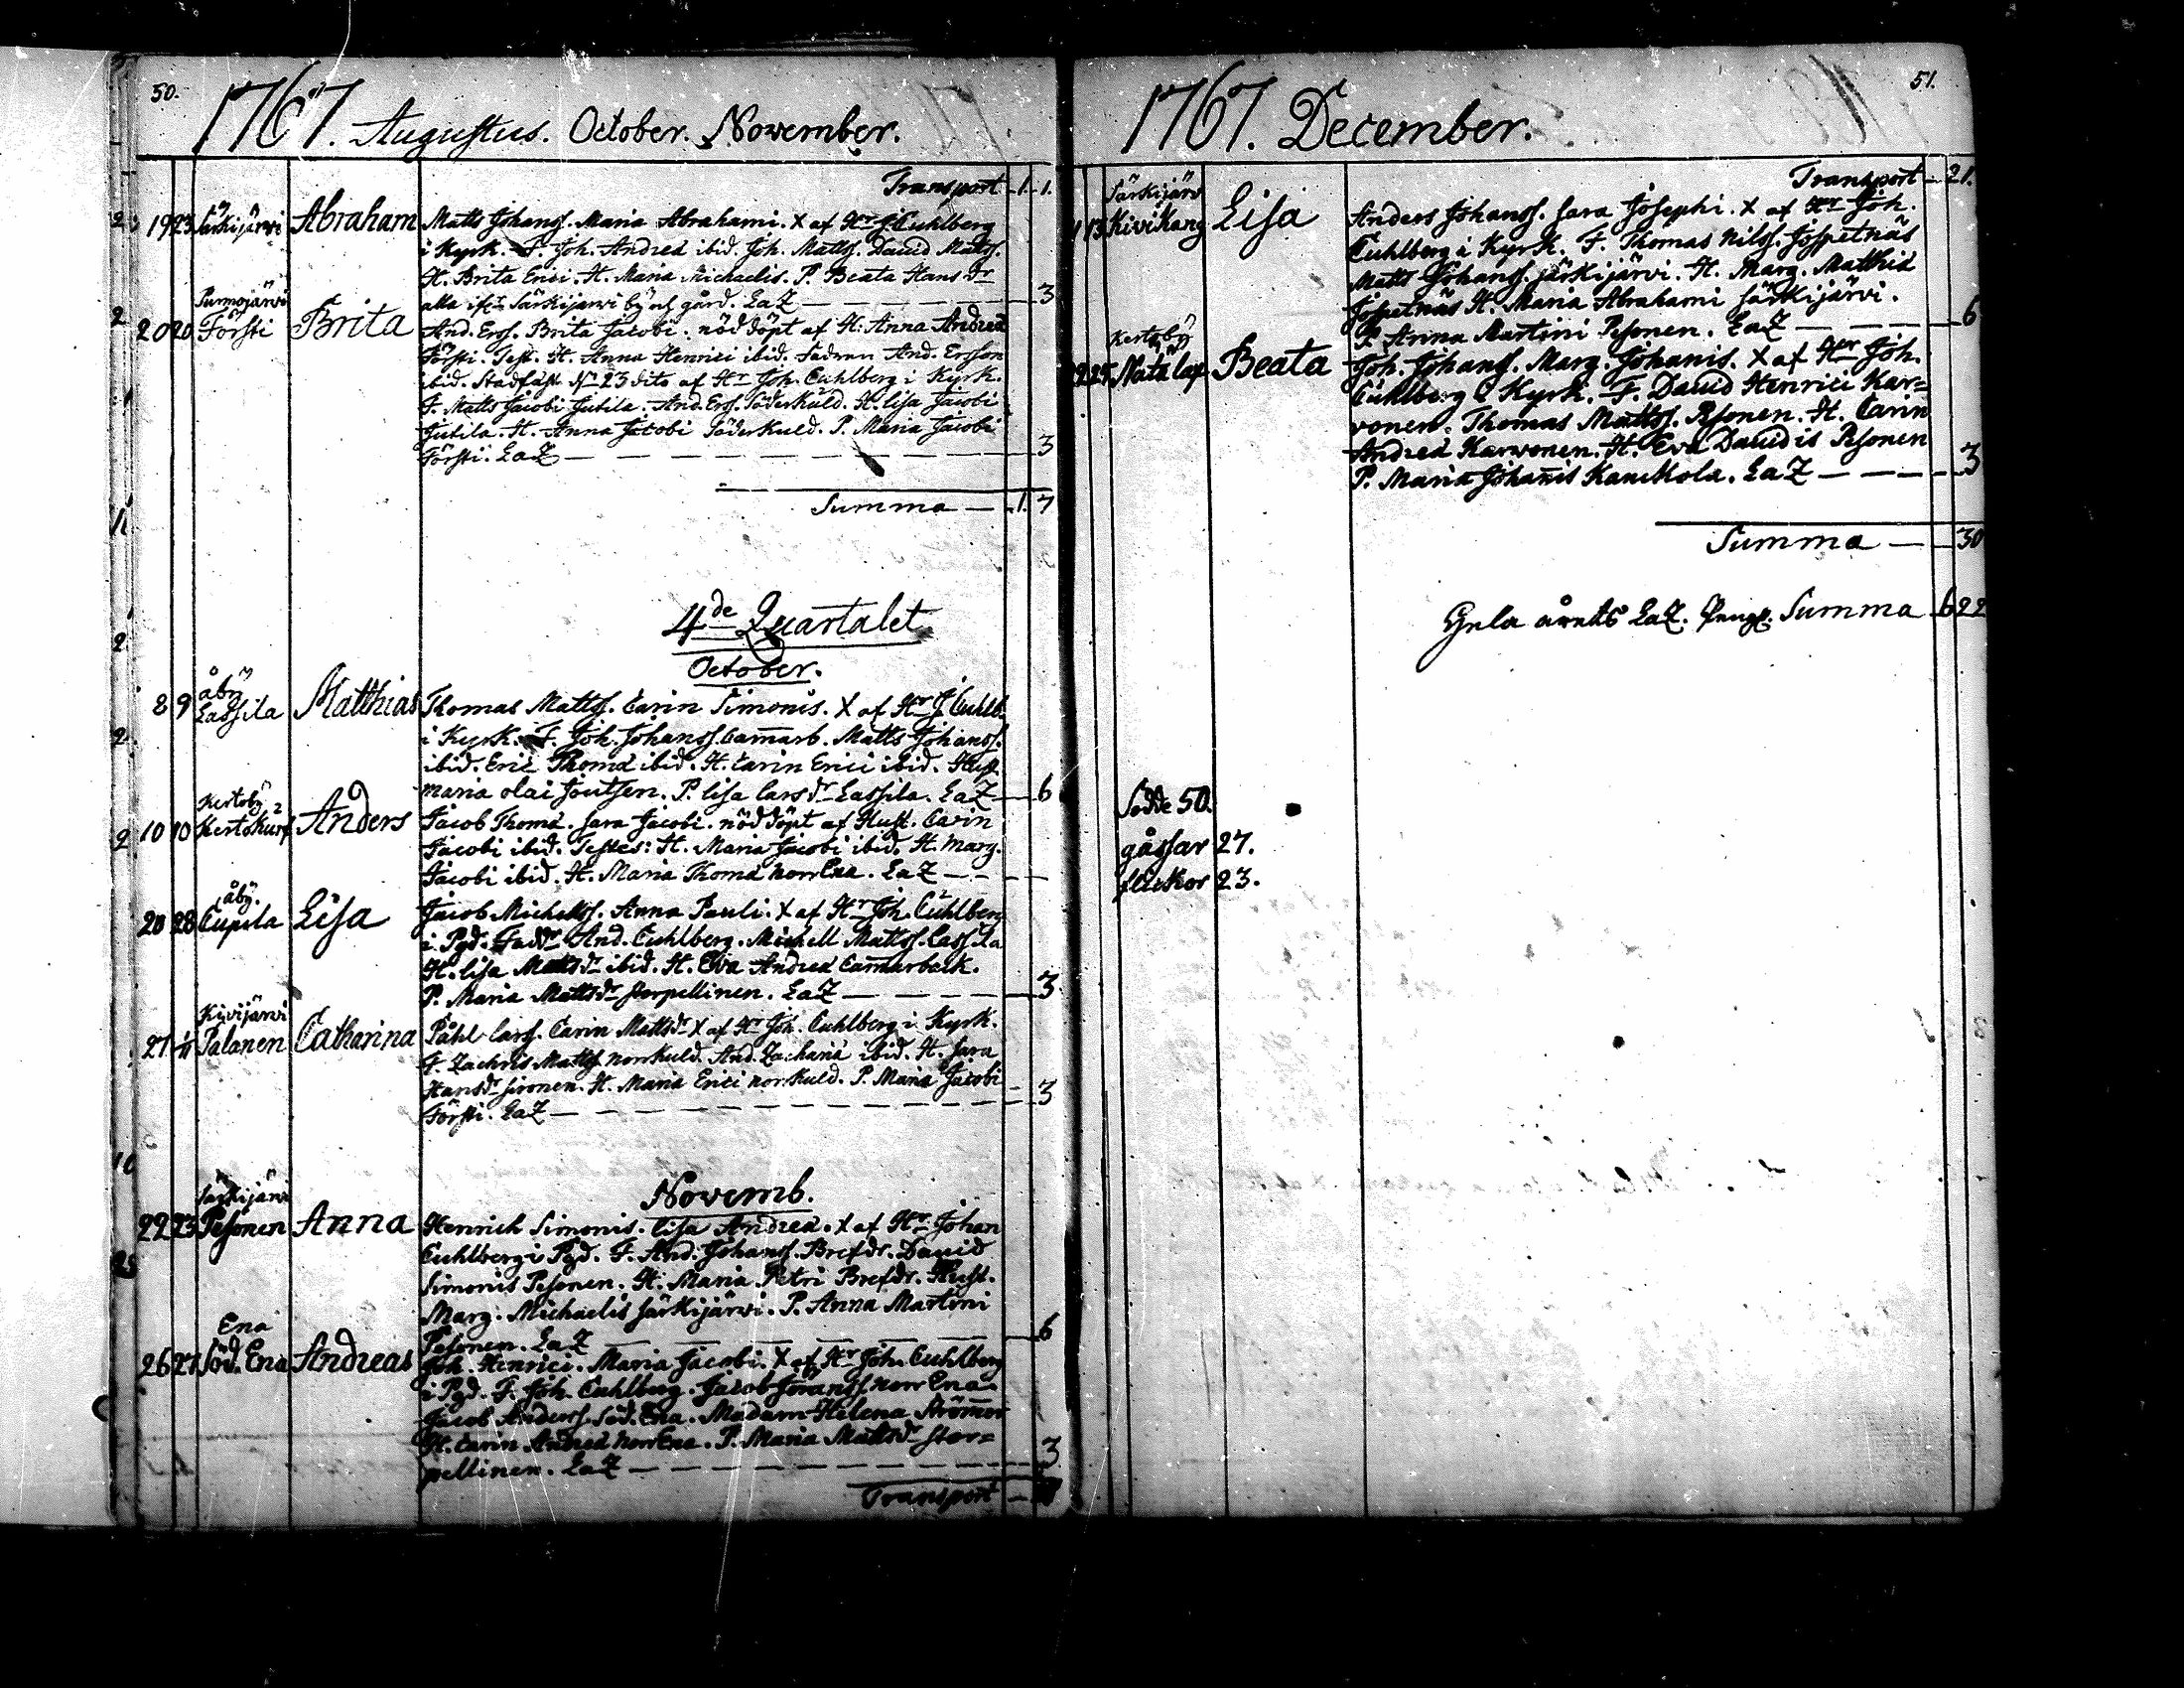 50.
1767. Augustus. October. November.
Transport 1. 1.
19 23 Särkijärvi Abraham Matts Johanss. Maria Abrahami. X af Hr J Cuhlberg
i Kyrk. F. Joh. Andreæ ibid. Joh. Mattss. David Matss.
H. Brita Erici. H. Maria Michaelis. P. Beata Hans dr
alla ifr. Särkijärwi by och gård. LaZ 3
Purmojärvi
20 20 Försti Brita And. Erss. Brita Jacobi. nöddöpt af H. Anna Andreæ
Försti. Test. H. Anna Henrici ibid. Fadren And. Ersson
ibid. Stadfäst d. 23 dito af Hr Joh. Cuhlberg i Kyrk.
F. Matts Jacobi Jutila. And. Erss. Söderkuld. H. Lisa Jacobi
Jutila. H. Anna Jacobi Söderkuld. P. Maria Jacobi
Försti. LaZ 3
Summa 1. 7
4de Quartalet
October.
åby
8 9 Lassila Matthias Thomas Mattss. Carin Simonis. X af Hr J. Cuhlb.
i Kyrk. F. Joh. Johanss. Cam̄arb. Matts Johanss.
ibid. Eric Thomæ ibid. H. Carin Erici ibid. Hust.
Maria Olai Joutsen. P. Lisa Lars dr Lassila. LaZ 6
Kertoby
10 10 Anders Jacob Thomæ. Sara Jacobi. nöddöpt af Hust. Carin
Jacobi ibid. Testes: H. Maria Jacobi ibid. H. Marg.
Jacobi ibid. H. Maria Thomæ Norr Ena. LaZ
åby.
20 28 Cupila Lisa Jacob Michelss. Anna Pauli. X af Hr Joh. Cuhlberg
i Pgd. Faddr And. Cuhlberg. Michell Mattss. Lassila
H. Lisa Matts dr ibid. H. Eva Andreæ Cam̄arback.
P. Maria Matts dr Storpellinen. LaZ 3
Kivijärvi
27 Palanen Catharina Påhl Larss. Carin Matts dr X af Hr Joh. Cuhlberg i Kyrk.
F. Zachris Mattss. Norrkuld. And. Zachariæ ibid. H. Sara
Hans dr Sironen. H. Maria Erici Norrkuld. P. Maria Jacobi
Försti. LaZ 3
Novemb.
Särkijärvi
22 23 Pesonen Anna Henrich Simonis. Lisa Andreæ. X af Hr Johan
Cuhlberg i Pgd. F. And. Johanss. Brefdr. David
Simonis Pesonen. H. Maria Petri Brefdr. Hust.
Marg. Michaelis Särkijärwi. P. Anna Martini
Pesonen. LaZ 6
Ena
26 27 Söd. Ena Andreas Joh. Henrici. Maria Jacobi. X af Hr Joh. Cuhlberg
i Pgd. F. Joh. Cuhlberg. Jacob Jöranss. Norr Ena
Jacob Anderss. Söd. Ena. Madam Helena Ström̄er
H. Carin Andreæ Norr Ena. P. Maria Matts dr Stor=
pellinen. LaZ 3
Transport
51.
1767. December.
Transport 21.
Särkijärv
13 Kivikang Lisa Anders Johanss. Sara Josephi. X af Hr Joh.
Cuhlberg i Kyrk. F. Thomas Nilss. Jospetnäs
Matts Johanss. Särkijärvi. H. Marg. Matthiæ
Jospetnäs H. Maria Abrahami Särkijärvi.
P. Anna Martini Pesonen. LaZ 6
Kertoby
25 Nätälax Beata Joh. Johanss. Marg. Johanis. X af Hr Joh.
Cuhlberg i Kyrk. F. David Henrici Kar=
vonen. Thomas Mattss. Pesonen. H. Carin
Andreæ Karwonen. H. Eva Davidis Pesonen
P. Maria Johan̄is Kauckola. LaZ 3
Summa 30
Hela årets LaZ. Peng. Summa 6 22
Födde 50.
gåssar 27.
flickor 23.